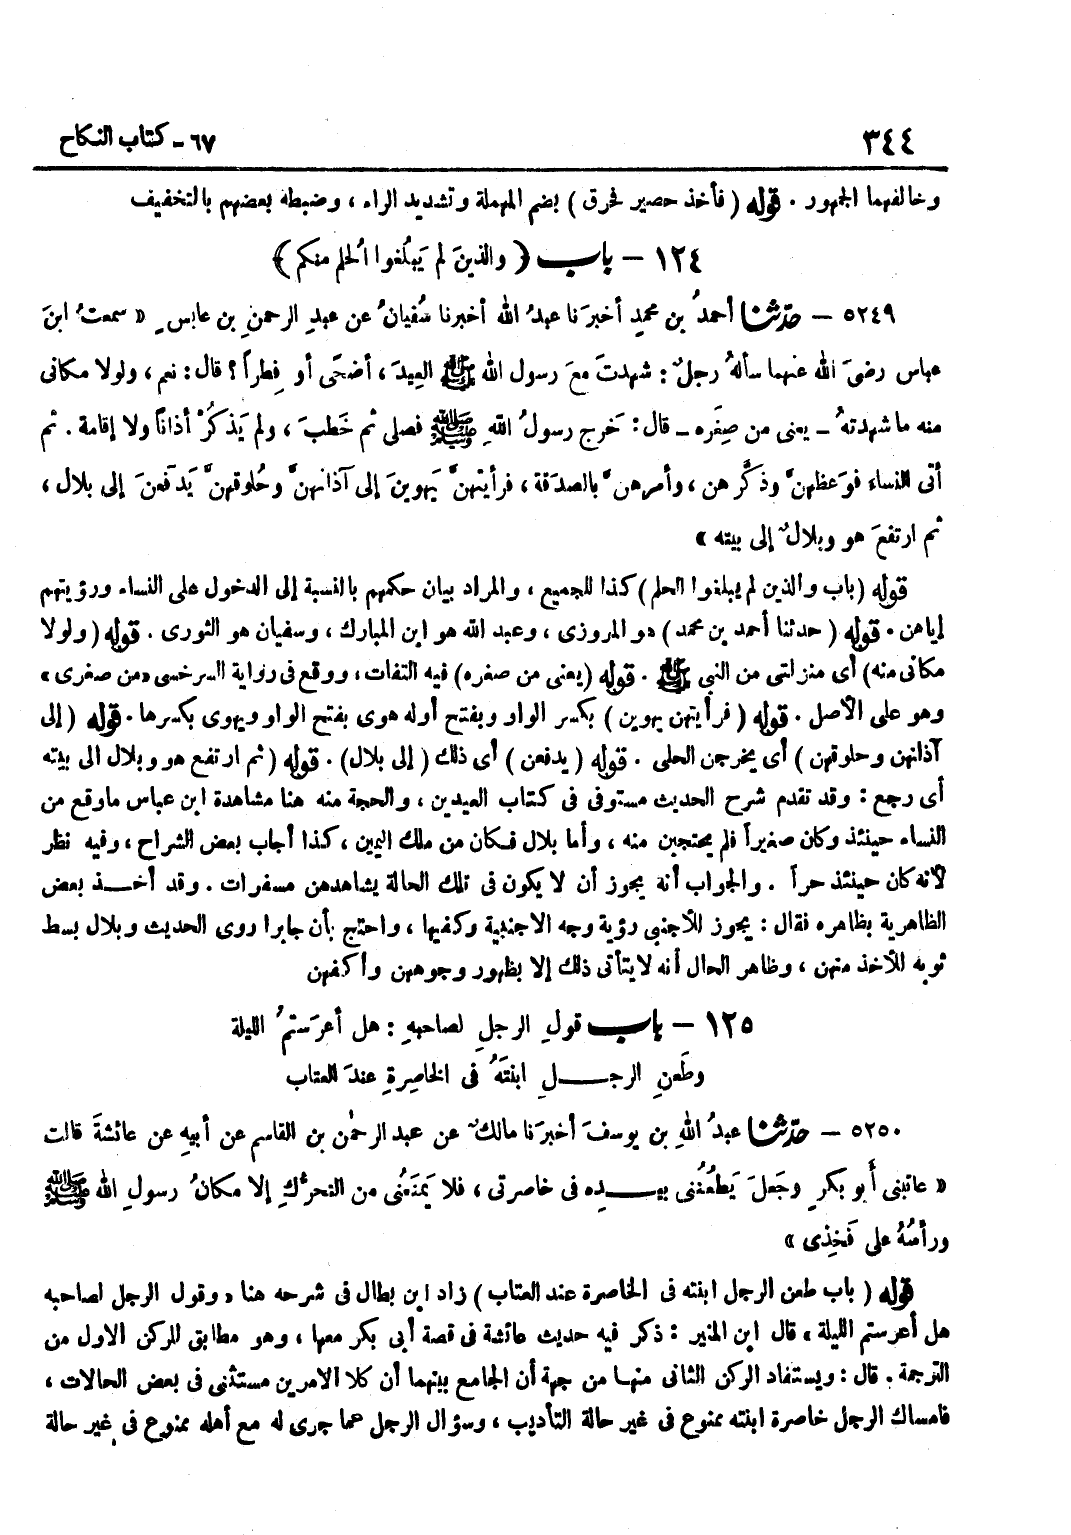 ٣٤٤
٦٧ - كتاب النكاح
وخالفهما الجمهور . قوله ( فأخذ حصير لحرق ) بضم المهملة وتشديد الراء ، وضبطه بعضهم بالتخفيف
١٢٤ - باب ( والذينَ لم يَبلُغوا الُحلم منكم )
٥٢٤٩ - حدّثنا أحمدُ بن محمدٍ أخبرَنا عبدُ الله أخبرنا سُفيانُ عن عبدِ الرحمنِ بن عابسٍ « سمعتُ ابنَ
عباس رضىَ الله عنهما سألهُ رجلٌ : شهدتَ معَ رسول الله ﷺ العِيدَ ، أضحًى أو فِطراً ؟ قال : نعم ، ولولا مكانى
منه ما شهدتهُ ــ يعنى من صِغَره ــ قال : خرج رسولُ اللهِ ﷺ فصلى ثم خَطبَ ، ولم يَذكُرْ أذاناً ولا إقامة . ثم
أتى النساء فوَعظهنَّ وذكَّرهن ، وأمرهنَّ بالصدَقة ، فرأيتهنَّ يَهوِينَ إلى آذانهنَّ وحُلوقهنَّ يَدفَعنَ إلى بلال ،
ثم ارتفعَ هو وبلالٌ إلى بيته »
قوله ( باب والذين لم يبلغوا الحلم ) كذا للجميع ، والمراد بيان حكمهم بالنسبة إلى الدخول على النساء ورؤيتهم
إياهن . قوله ( حدثنا أحمد بن محمد ) هو المروزى ، وعبد الله هو ابن المبارك ، وسفيان هو الثورى . قوله ( ولولا
مكانى منه ) أى منزلتى من النبى ﷺ . قوله ( يعنى من صغره ) فيه التفات ، ووقع فى رواية السرخسى « من صغرى »
وهو على الأصل . قوله ( فرأيتهن يهوين ) بكسر الواو وبفتح أوله هوى بفتح الواو ويهوى بكسرها . قوله ( إلى
آذانهن وحلوقهن ) أى يخرجن الحلى . قوله ( يدفعن ) أى ذلك ( إلى بلال ) . قوله ( ثم ارتفع هو وبلال الى بيته
أى رجع : وقد تقدم شرح الحديث مستوفى فى كتاب العيدين ، والحجة منه هنا مشاهدة ابن عباس ماوقع من
النساء حينئذ وكان صغيراً فلم يحتجبن منه ، وأما بلال فكان من ملك اليمين ، كذا أجاب بعض الشراح ، وفيه نظر
لأنه كان حينئذ حراً . والجواب أنه يجوز أن لا يكون فى تلك الحالة يشاهدهن مسفرات . وقد أخذ بعض
الظاهرية بظاهره فقال : يجوز للأجنبى رؤية وجه الاجنبية وكفيها ، واحتج بأن جابرا روى الحديث وبلال بسط
ثوبه للأخذ منهن ، وظاهر الحال أنه لا يتأتى ذلك إلا بظهور وجوههن وأكفهن
١٢٥ - باب قولِ الرجلِ لصاحبهِ : هل أعرَستمُ الليلة
وطَعنِ الرجلِ ابنتَهُ فى الخاصِرةِ عندَ العتاب
٥٢٥٠ - حدّثنا عبدُ اللهِ بن يوسفَ أخبرَنا مالكٌ عن عبد الرحمٰن بن القاسم عن أبيهِ عن عائشةَ قالت
« عاتبنى أبو بكرٍ وجَعلَ يَطعُنُنى بيدِه فى خاصرتى ، فلا يَمنَعُنى من التحرُّكِ إلا مكانُ رسولِ الله ﷺ
ورأسُهُ على فَخِذِى »
قوله ( باب طعن الرجل ابنته فى الخاصرة عند العتاب ) زاد ابن بطال فى شرحه هنا « وقول الرجل لصاحبه
هل أعرستم الليلة » قال ابن المنير : ذكر فيه حديث عائشة فى قصة أبى بكر معها ، وهو مطابق للركن الاول من
الترجمة . قال : ويستفاد الركن الثانى منها من جهة أن الجامع بينهما أن كلا الامرين مستثنى فى بعض الحالات ،
فامساك الرجل خاصرة ابنته ممنوع فى غير حالة التأديب ، وسؤال الرجل عما جرى له مع أهله ممنوع فى غير حالة